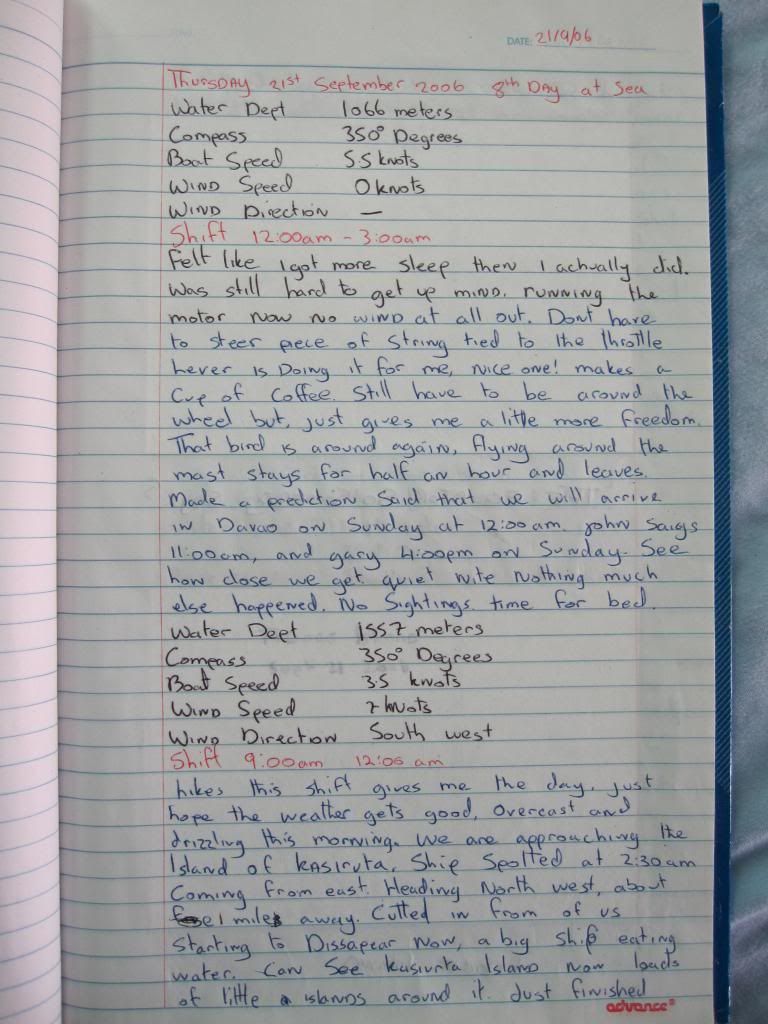 DATE: 21/9/06
Thursday 21st September 2006 8th Day at Sea
Water Dept 1066 meters
Compass 350° Degrees
Boat Speed 5.5 knots
Wind Speed 0 knots
Wind Direction —
Shift 12:00am - 3:00am
Felt like I got more sleep then I achually did.
Was still hard to get up mind. running the
motor now no wind at all out. Dont have
to steer piece of string tied to the throttle
Lever is Doing it for me, nice one! makes a
Cup of Coffee. Still have to be around the
wheel but, just gives me a little more freedom.
That bird is around again, flying around the
mast stays for half an hour and leaves.
Made a prediction. Said that we will arrive
in Davao on Sunday at 12:00am. John Saigs
11:00am, and gary 4:00pm on Sunday. See
how close we get quiet nite nothing much
else happened. No Sightings. time for bed.
Water Dept 1557 meters
Compass 350° Degrees
Boat Speed 3.5 knots
Wind Speed 7 knots
Wind Direction South west
Shift 9:00am 12:00 am
Likes this shift gives me the day, just
hope the weather gets good, Overcast and
drizzling this morning. We are approaching the
Island of Kasiruta, Ship Spotted at 2:30am
Coming from east. Heading North west, about
1 miles away. Cutted in from of us
Starting to Dissapear now, a big Ship eating
water. Can See Kasiruta Island now loads
of little islands around it. Just finished
advance